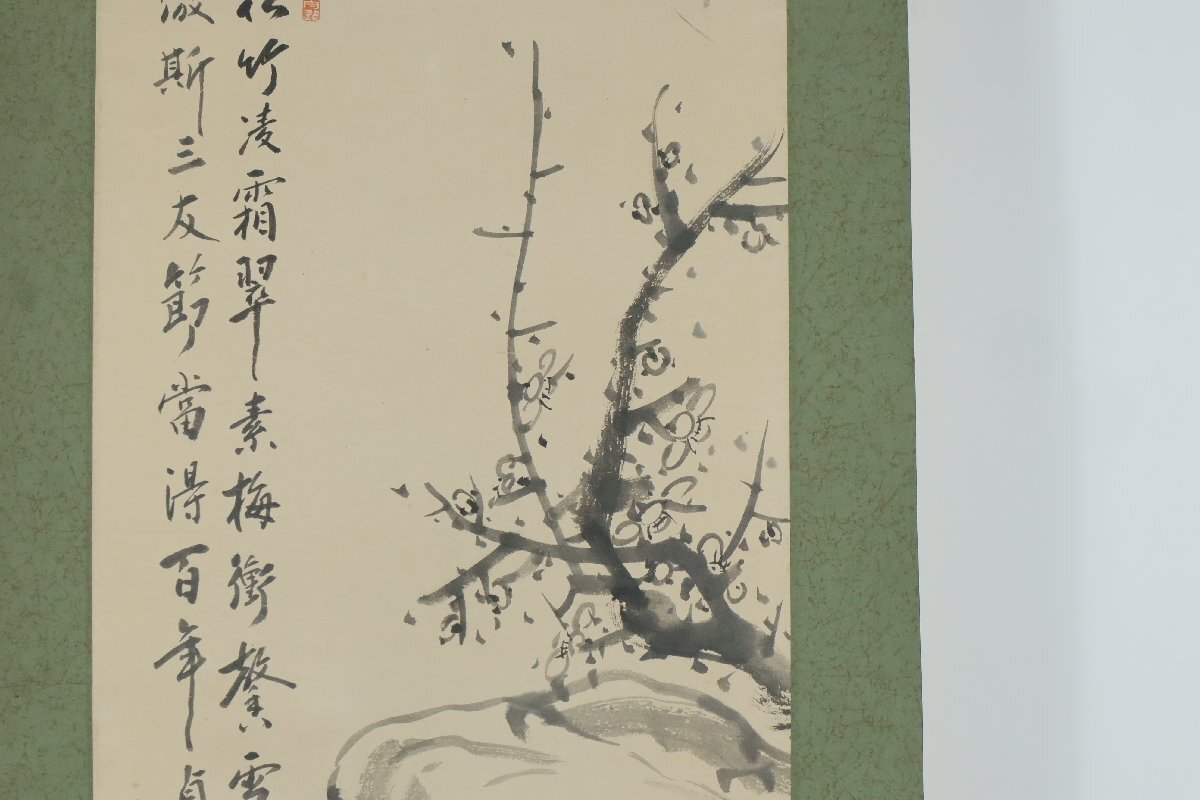 松竹凌霜翠素梅衝馨雪
斯三友節當得百年貞